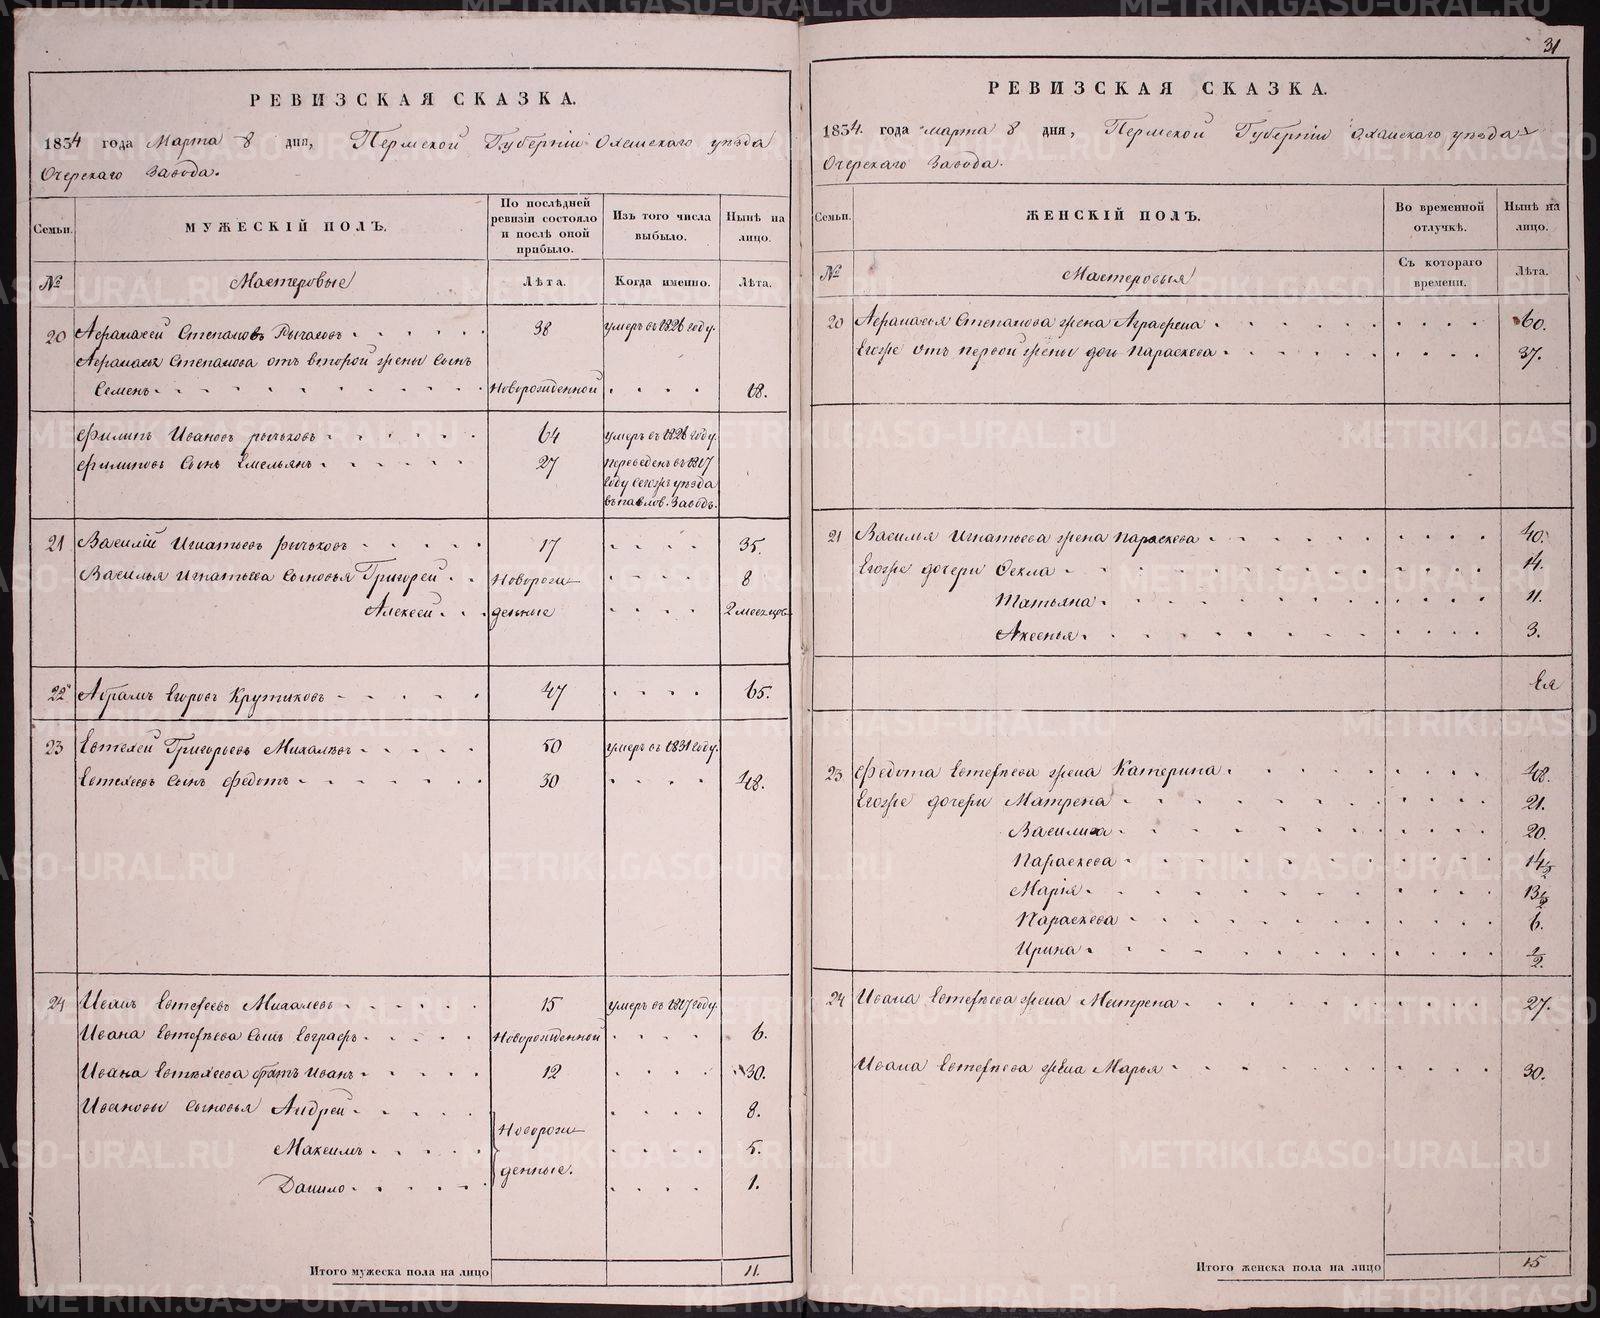 РЕВИЗСКАЯ СКАЗКА.
1834 года Марта 8 дня, Пермской Губернiи Оханскаго уѣзда
Очерскаго Завода.
Семьи.
МУЖЕСКІЙ ПОЛЪ.
По послѣдней ревизіи состояло и послѣ оной прибыло.
Изъ того числа выбыло.
Нынѣ на лицо.
№
Мастеровые
Лѣта.
Когда именно.
Лѣта.
20 Афанасей Степановъ Рычковъ 38 умеръ въ 1826 году.
Афанасья Степанова отъ второй жены сынъ
Семенъ Новорожденной 18.
Филипъ Ивановъ рычковъ 64 умеръ въ 1826 году.
Филиповъ сынъ Емельянъ 27 переведенъ въ 1817
году сегожъ уѣзда
въ павлов. Заводъ.
21 Василій Игнатьевъ рычковъ 17 35.
Василья Игнатьева сыновья Григорей Новорож- 8
Алексей денные 2 месецов
22 Абрамъ Егоровъ Крутиковъ 47 65.
23 Евтехей Григорьевъ Михалевъ 50 умеръ въ 1831 году.
Евтехеевъ сынъ Федотъ 30 48.
24 Иванъ Евтефеевъ Михалевъ 15 умеръ въ 1817 году.
Ивана Евтефѣева сынъ Евграфъ Новорожденной 6.
Ивана Евтехеева братъ Иванъ 12 30.
Ивановы сыновья Андрей 8.
Новорож-
Максимъ 5.
денные.
Данило 1.
Итого мужеска пола на лицо 11.
31
РЕВИЗСКАЯ СКАЗКА.
1834. года марта 8 дня, Пермской Губернiи Оханскаго уѣзда
Очерскаго Завода.
Семьи.
ЖЕНСКІЙ ПОЛЪ.
Во временной отлучкѣ.
Нынѣ на лицо.
№
Мастеровыя
Съ котораго времени.
Лѣта.
20 Афанасья Степанова жена Аграфена 60.
Егоже отъ первой жены дочь Параскева 37.
21 Василья Игнатьева жена Параскева 40.
Егоже дочери Фекла 14.
Татьяна 11.
Аксенья 3.
23 Федота Евтефѣева жена Катерина 48.
Егоже дочери Матрена 21.
Василиса 20.
Параскева 14 1/2
Марія 13 1/2
Параскева 6.
Ирина 1/2.
24 Ивана Евтефѣева жена Матрена 27.
Ивана Евтефѣева жена Марья 30.
Итого женска пола на лицо 15
METRIKI.GASO-URAL.RU